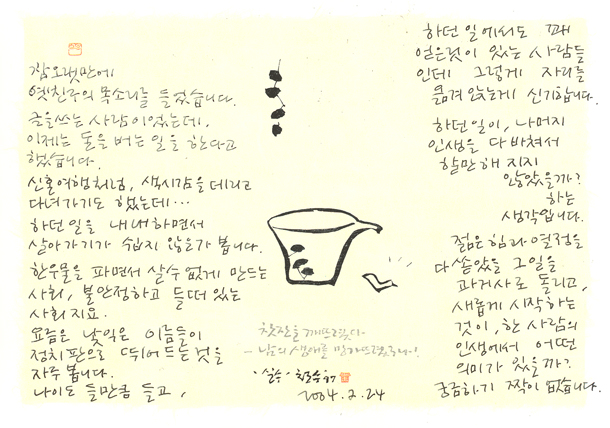 참오랫만에
옛친구의 목소리를 들었습니다.
글을쓰는 사람이었는데,
이제는 돈을 버는 일을 한다고
했습니다.
신혼여행처럼, 색시감을 데리고
다녀가기도 했는데…
하던 일을 내내하면서
살아가기가 쉽지 않은가 봅니다.
한우물을 파면서 살수 없게 만드는
사회, 불안정하고 들떠 있는
사회지요.
요즘은 낯익은 이름들이
정치판으로 뛰어드는것을
자주 봅니다.
나이도 들만큼 들고,
하던 일에서도 꽤
얻은것이 있는 사람들
인데 그렇게 자리를
옮겨 앉는게 신기합니다.
하던일이, 나머지
인생을 다 바쳐서
할만해 지지
않았을까?
하는
생각입니다.
젊은힘과 열정을
다 쏟았을 그일을
과거사로 돌리고,
새롭게 시작하는
것이, 한 사람의
인생에서 어떤
의미가 있을까?
궁금하기 짝이 없습니다.
찻잔을 깨뜨렸다
- 남의 생애를 망가뜨렸구나!
·실수·
2004.2.24